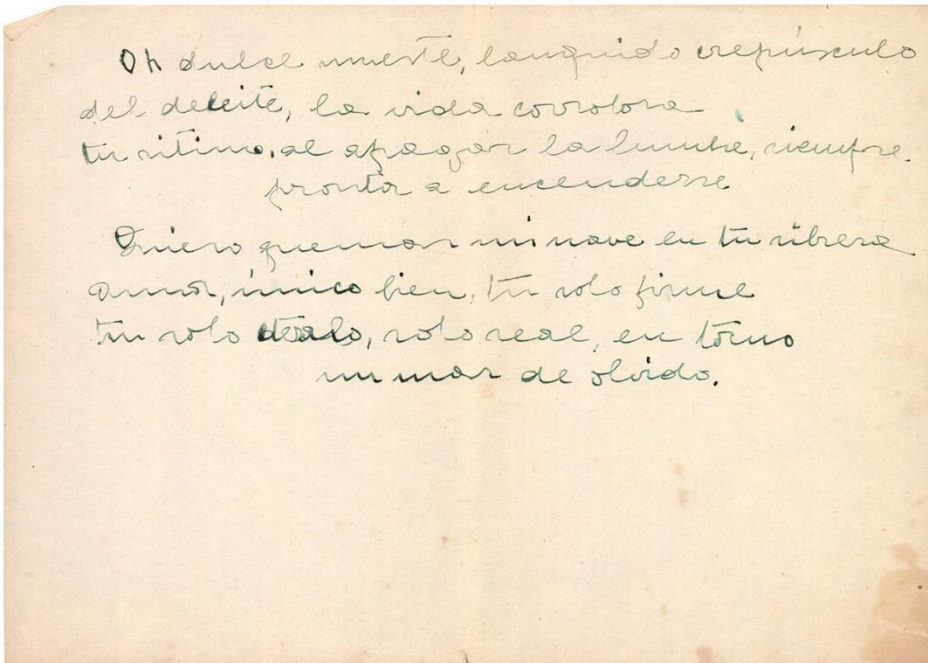 Oh dulce muerte, languido crepúsculo
del deleite, la vida corrobora
tu ritimo, al apagar la lumbre, siempre
pronta a encenderse
Quiero quemar mi nave en tu ribera
amor, único bien, tu solo firme
tu solo, solo real, en torno
un mar de olvido.